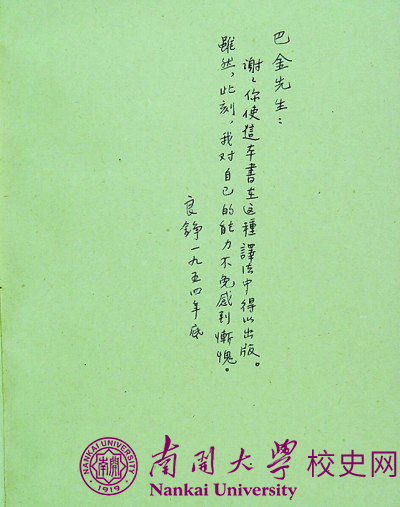 巴金先生：
谢谢你使這本書在这種譯法中得以出版。
雖然，此刻，我对自己的能力不免感到慚愧。
良錚一九五四年底
NANKAI UNIVERSITY
南開
1919
南開大學 校史网
Nankai University